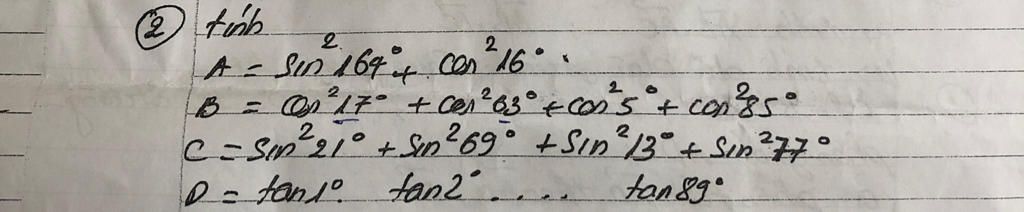 ② tính
A = sin²164° + cos²16°.
B = cos²17° + cos²63° + cos²5° + cos²85°
C = sin²21° + sin²69° + sin²13° + sin²77°
D = tan1°. tan2° . . . . tan89°